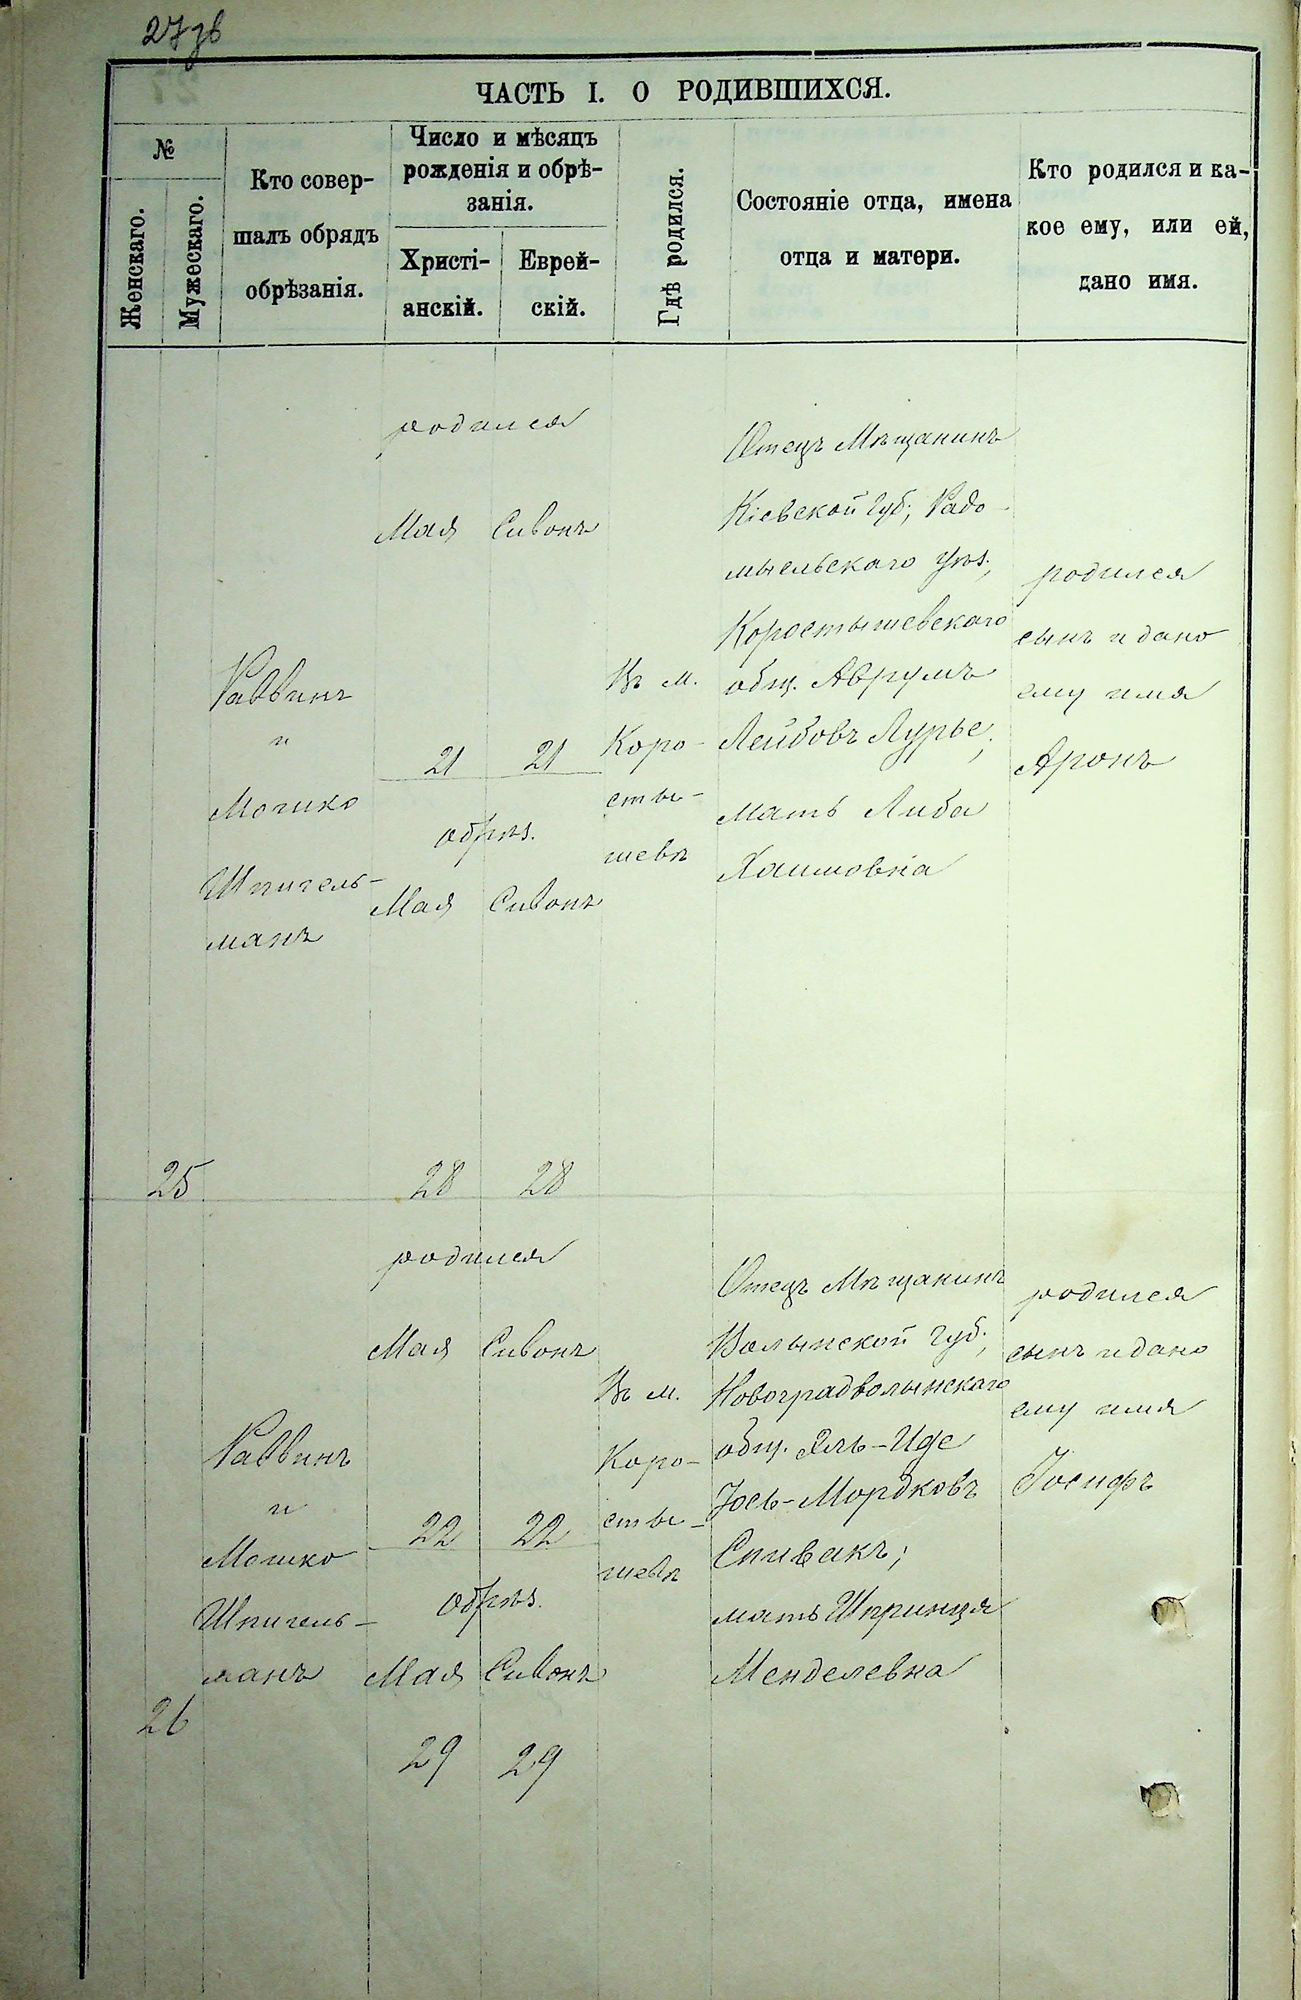 27зв
ЧАСТЬ I. О РОДИВШИХСЯ.
№
Женскаго.
Мужескаго.
Кто совер-
шалъ обрядъ
обрѣзанія.
Число и мѣсяцъ
рожденія и обрѣ-
занія.
Христі-
анскій.
Еврей-
скій.
Гдѣ родился.
Состояніе отца, имена
отца и матери.
Кто родился и ка-
кое ему, или ей,
дано имя.
25
Раввинъ
и
Мошко
Шпигель-
манъ
родился
Мая Сивонъ
21 21
обрѣз.
Мая Сивонъ
28 28
Въ м.
Коро-
сты-
шевѣ
Отецъ Мѣщанинъ
Кіевской Губ; Радо-
мысльскаго Уѣз.,
Коростышевскаго
общ. Аврумъ
Лейбовъ Лурье;
мать Либа
Хаимовна
родился
сынъ и дано
ему имя
Аронъ
26
Раввинъ
и
Мошко
Шпигель-
манъ
родился
Мая Сивонъ
22 22
обрѣз.
Мая Сивонъ
29 29
Въ м.
Коро-
сты-
шевѣ
Отецъ Мѣщанинъ
Волынской Губ;
Новоградволынскаго
общ.
Іось-Мордковъ
Спивакъ;
мать Шпринця
Менделевна
родился
сынъ и дано
ему имя
Іосифъ